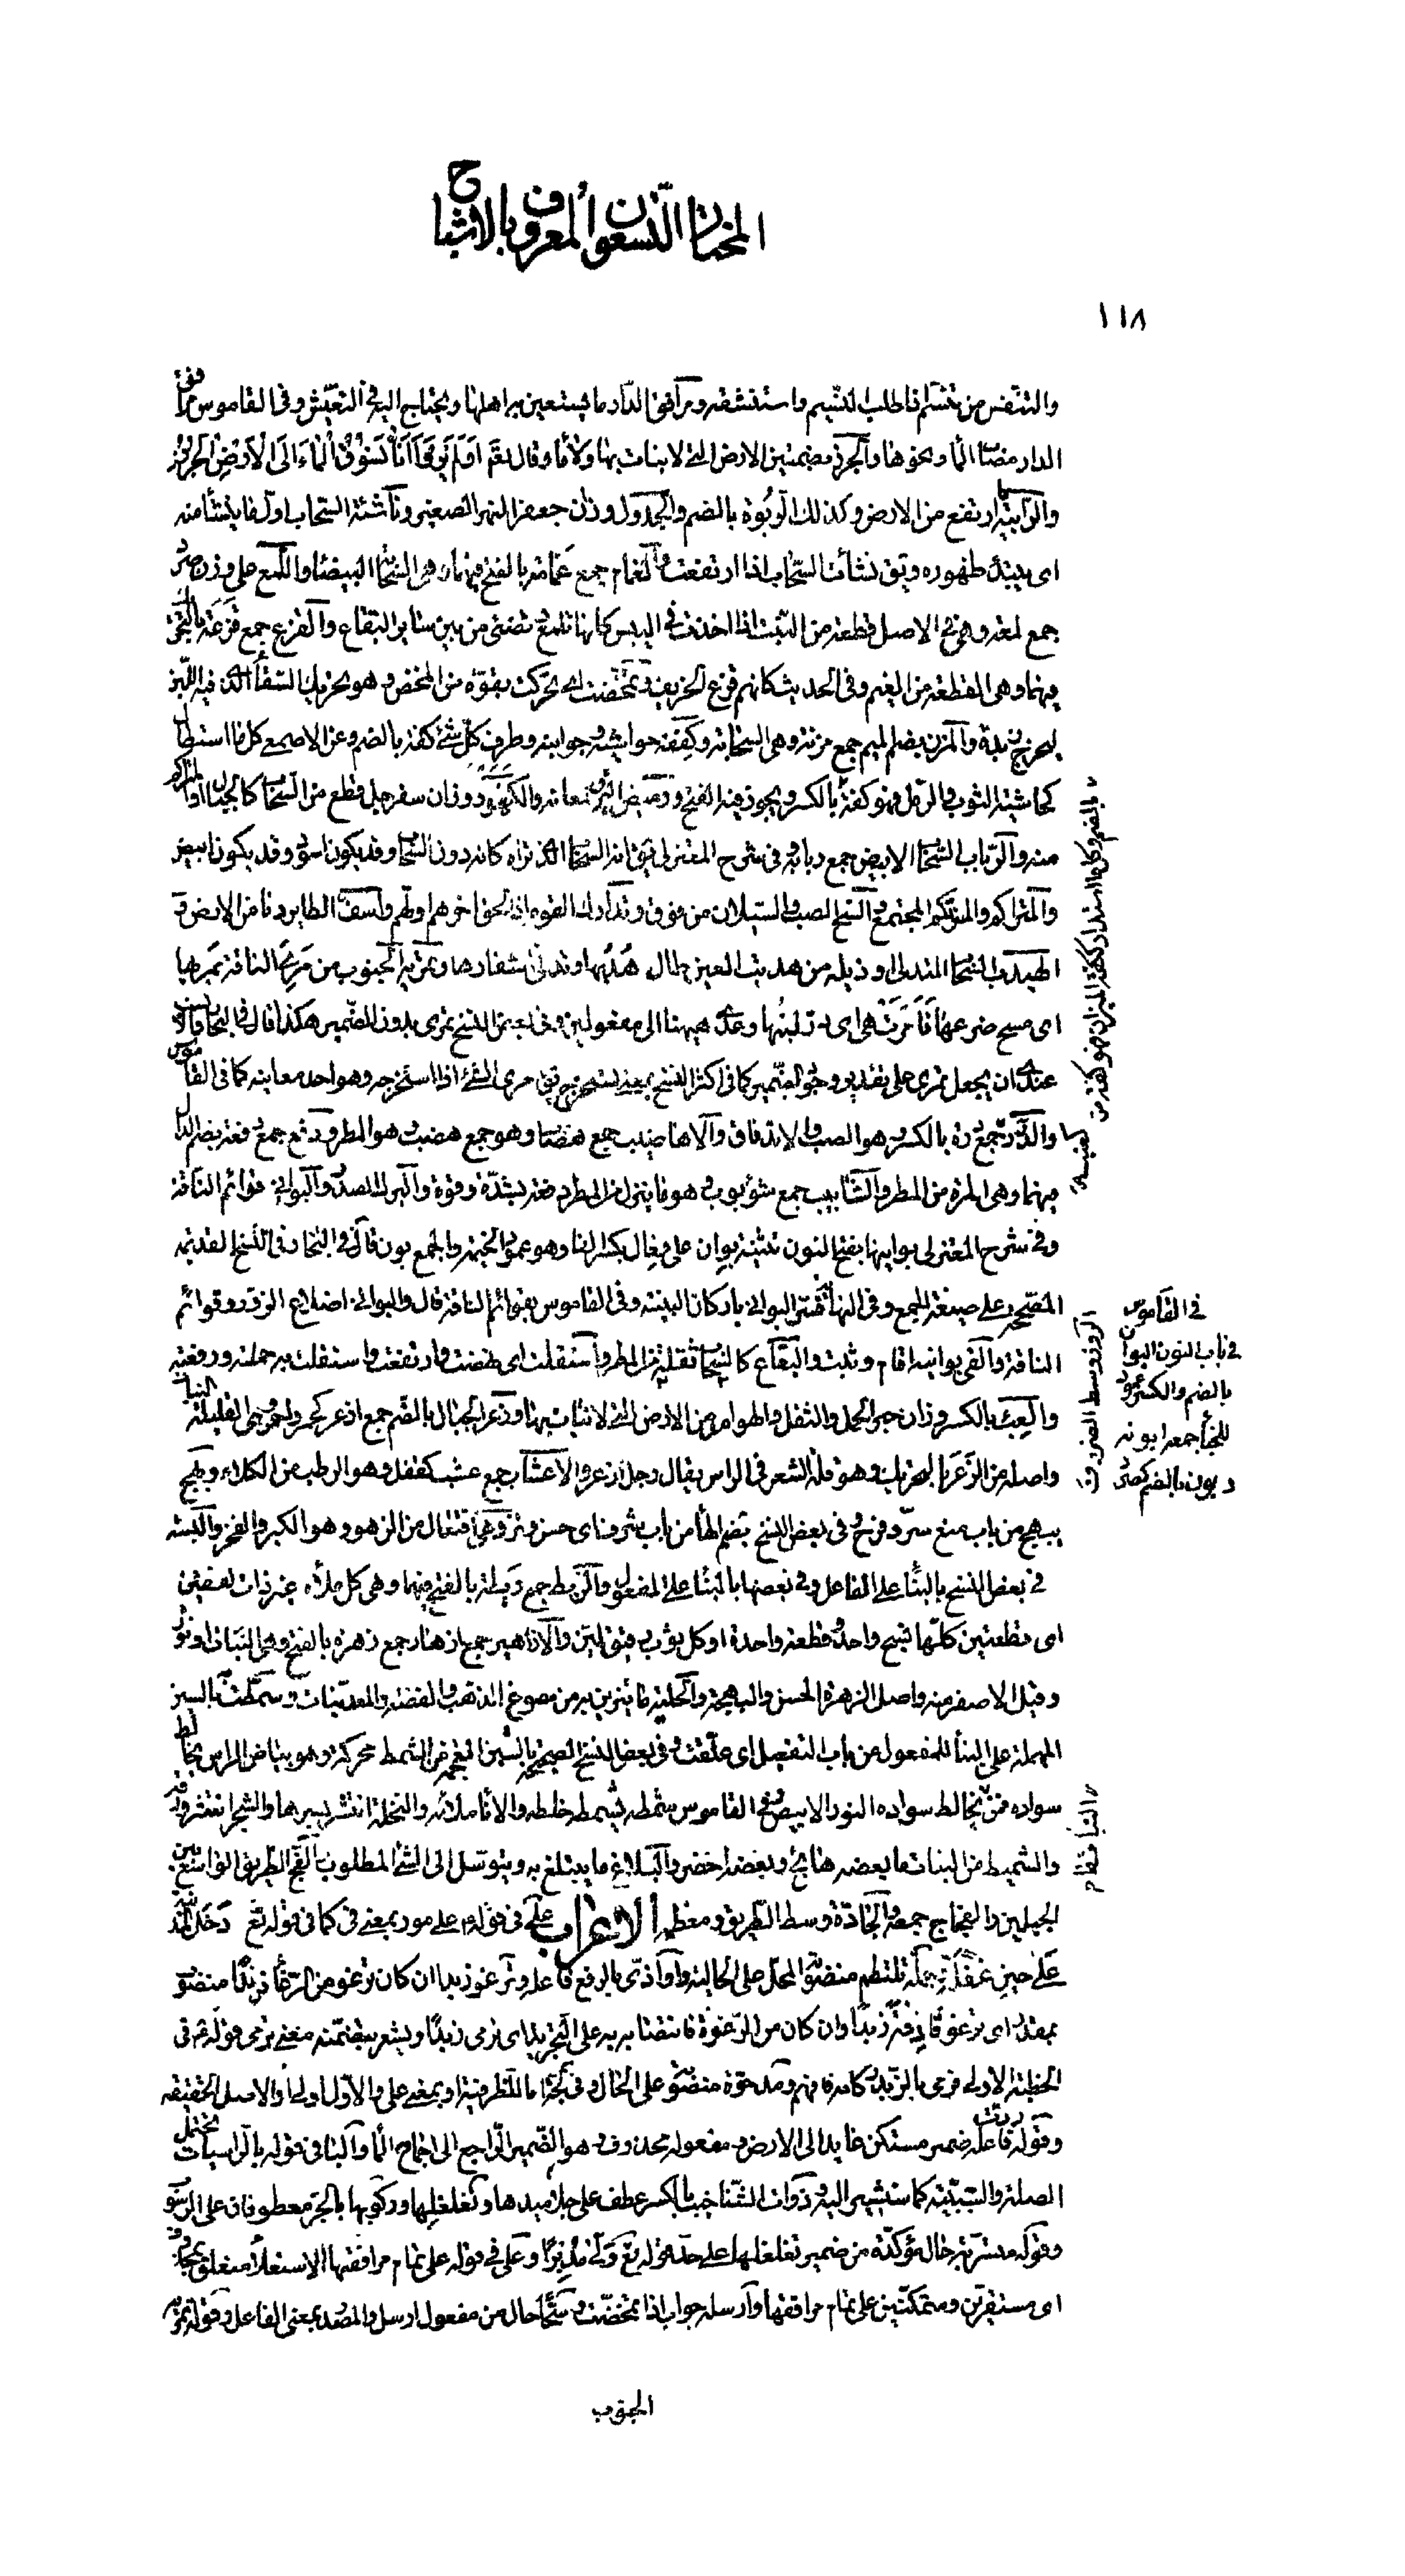 المختار التسعون المعروف بالاشباح
١١٨
والتنفس من تنسّم اذا طلب النسيم واستنشقه ومرافق الدار ما يستعين به اهلها ويحتاج اليه في التعيّش وفى القاموس مرافق
الدار مصابّ الماء ونحوها والجرز بضمتين الارض التي لا نبات بها ولا ماء وقال تعالى اولم يروا انّا نسوق الماء الى الارض الجرز
والرابية ما ارتفع من الارض وكذلك الربوة بالضم والجدول وزان جعفر النهر الصغير وناشئة السحاب اول ما ينشأ منه
اى يبتدء ظهوره ويق نشأت السحاب اذا ارتفعت والغمام جمع غمامة بالفتح فيهما وهى السحابة البيضاء واللمع على وزن صرد
جمع لمعة وهي في الاصل قطعة من النبت اذا اخذت في اليبس كانها تلمع وتضئ من بين ساير البقاع والقزع جمع قزعة بالتحريك
فيهما وهى القطعة من الغيم وفى الحديث كانهم قزع الخريف وتمخضت اى تحركت بقوة من المخض وهو تحريك السقاء الذى فيه اللبن
ليخرج زبده والمزن بضم الميم جمع مزنة وهى السحابة وكففه حواشيه وجوانبه وطرف كل شئ كفة بالضم وعن الاصمعى كل ما استطال
كحاشية الثوب والرمل فهو كفة بالكسر ويجوز فيه الفتح ووميض البرق لمعانه والكنهور وزان سفرجل قطع من السحاب كالجبال او المتراكم
منه والرباب السحاب الابيض جمع ربابة وفى شرح المعتزلى يق انه السحاب الذى تراه كانه دون السحاب وقد يكون اسود وقد يكون ابيض
والمتراكم والمرتكم المجتمع والسح الصب والسيلان من فوق وتدارك القوم اذا لحق اخرهم اولهم واسفّ الطاير دنا من الارض و
الهيدب السحاب المتدلى او ذيله من هدبت العين طال هدبها وتدلى اشفارها وتمريه الجنوب من مرى الناقة يمريها
اى مسح ضرعها فامرت هى اى درّ لبنها وعدى ههنا الى مفعولين وفى بعض النسخ تمرى بدون الضمير هكذا قال في البحار والانسب
عندى ان يجعل تمرى على تقدير وجود الضمير كما في اكثر النسخ بمعنى تستخرج يق مرى الشئ اذا استخرجه وهو احد معانيه كما فى القاموس
والدرر جمع درة بالكسر وهو الصب والاندفاق والاهاضيب جمع هضاب وهو جمع هضب وهو المطر ودفع جمع دفعة بضم الدال
فيهما وهى المرة من المطر والشآبيب جمع شؤبوب وهو ما ينزل من المطر دفعة بشدة وقوة والبرك الصدر والبوانى قوائم الناقة
وفى شرح المعتزلى بوانيها بفتح النون تثنية بوان على فعال بكسر الفاء وهو عمود الخيمة والجمع بون قال في البحار وفى النسخ القديمة
المصححة على صيغة الجمع وفى النهاية فسر البوانى باركان البنية وفى القاموس بقوائم الناقة قال والبوانى اضلاع الزور وقوائم
الناقة والقى بوانيه اقام وثبت والبعاع كالسحاب ثقله من المطر واستقلت اى نهضت وارتفعت واستقلت به حملته ورفعته
والعبء بالكسر وزان حبر الحمل والثقل والهوامد من الارض التي لا نبات بها وزعر الجبال بالضم جمع ازعر كحمر واحمر وهى القليلة النبات
واصله من الزعر بالتحريك وهو قلة الشعر فى الراس يقال رجل ازعر والاعشاب جمع عشب كقفل وهو الرطب من الكلاء وبهج
يبهج من باب منع سرّ وفرح وفى بعض النسخ بضم الهاء من باب شرف اى حسن وتزدهى افتعال من الزهو وهو الكبر والفخر والبسته
في بعض النسخ بالبناء على الفاعل وفى بعضها بالبناء على المفعول والريط جمع ريطة بالفتح فيهما وهى كل ملاءة غير ذات لفقين
اى قطعتين كلها نسج واحد وقطعة واحدة او كل ثوب رقيق لين والازاهير جمع ازهار جمع زهرة بالفتح وهى النبات او نوره
وقيل الاصفر منه واصل الزهرة الحسن والبهجة والحلية ما يتزين به من مصوغ الذهب والفضة والمعدنيات وسمّطت بالسين
المهملة على البناء للمفعول من باب التفعيل اى علّقت وفى بعض النسخ الصحيحة بالشين المعجمة من الشمط محركة وهو بياض الراس يخالط
سواده فمن يخالط سواده النور الابيض وفى القاموس شمطه يشمطه خلطه والاناء ملأه والنخلة انتشر بسرها والشجر انتثر ورقه
والشميط من النبات ما بعضه هائج وبعضه اخضر والبلاغ ما يتبلغ به ويتوسل الى الشئ المطلوب والفج الطريق الواسع بين
الجبلين والفجاج جمعه والجادة وسط الطريق ومعظمه الاعراب على في قوله على مور بمعنى فى كما فى قوله تع دخل المدينة
على حين غفلة وجملة تلتطم منصوبة المحل على الحالية واواذى بالرفع فاعله وترغو زبدا ان كان ترغو من الرغاء فزبدا منصوب
بمقدر اى ترغو قاذفة زبدا وان كان من الرغوة فانتصابه به على التجريد اى ترمى زبدا ويشعر بتضمنه معنى ترمى قوله في
الخطبة الاولى فرمى بالزبد ركامه فافهم ومدحوة منصوب على الحال وفى لجة اما للظرفية او بمعنى على والاول اولى والاصل الحقيقة
وقوله وردّت فاعله ضمير مستكن عايد الى الارض ومفعوله محذوف وهو الضمير الراجع الى جماح الماء والباء فى قوله بالراسيات تحتمل
الصلة والسببية كما ستشير اليه وذوات الشناخيب بالكسر عطف على جلاميدها وتغلغلها وركوبها بالجر معطوفان على الرسوب
وقوله متسربة حال مؤكدة من ضمير تغلغلها على حد قوله تع ولّى مدبرا وعلى في قوله على تمام مرافقها الاستعلاء متعلق بمحذوف
اى مستقرين ومتمكنين على تمام مرافقها وارسله جواب اذا تمخضت وسحا حال من مفعول ارسل والمصدر بمعنى الفاعل وقوله تمريه
الجنوب
بالضم وكل ما استدار ككفة الميزان فهو كفة
في القاموس
في باب النون البوان
بالضم والكسر عمود
للخباء جمعه ابونة
وبون بالضم كصرد
الزور وسط الصدر